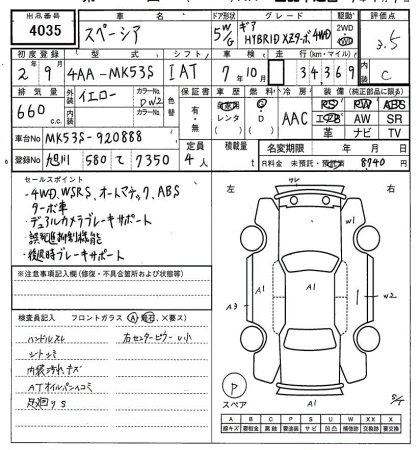 出品番号 車名 ドア形状 グレード 駆動 評価点
4035 スペーシア 5W/G ギア HYBRID XZターボ4WD 2WD 4WD 3.5
初度登録 型式 シフト 車検 走行(km・マイル) 内装
2年9月 4AA-MK53S IAT 7年10月 34369 C
排気量 外装色 カラーNo. 色替 保証書 車歴 燃料 冷房 装備(純正部品に限る)
660c.c. イエロー DW2 有・無 自家用 レンタ G・D AAC PS PW ABS
内装 カラーNo. エアB AW SR
革 ナビ TV
車台No MK53S-920888 定員 積載量 名変期限 年 月 日
登録No 旭川 580 て 7350 4人 t R料金 未預託・預託済 8940円
セールスポイント
・4WD、WSRS、オートマチック、ABS
ターボ車
・デュアルカメラブレーキサポート
・誤発進抑制機能
・後退時ブレーキサポート
※注意事項記入欄(修復・不具合箇所および状態等)
検査員記入 フロントガラス (A 飛石、×要ス)
ハンドルスレ 右センターピラーU小
シートシミ
内装汚れキズ
ATオイルパンAコミ
左 右
W1
A3 A1 A1 A1 W2
P
スペア
A B C P S U W X XX
線キズ 要板金 腐蝕 要塗装 サビ 凹 補修 要交換 交換済